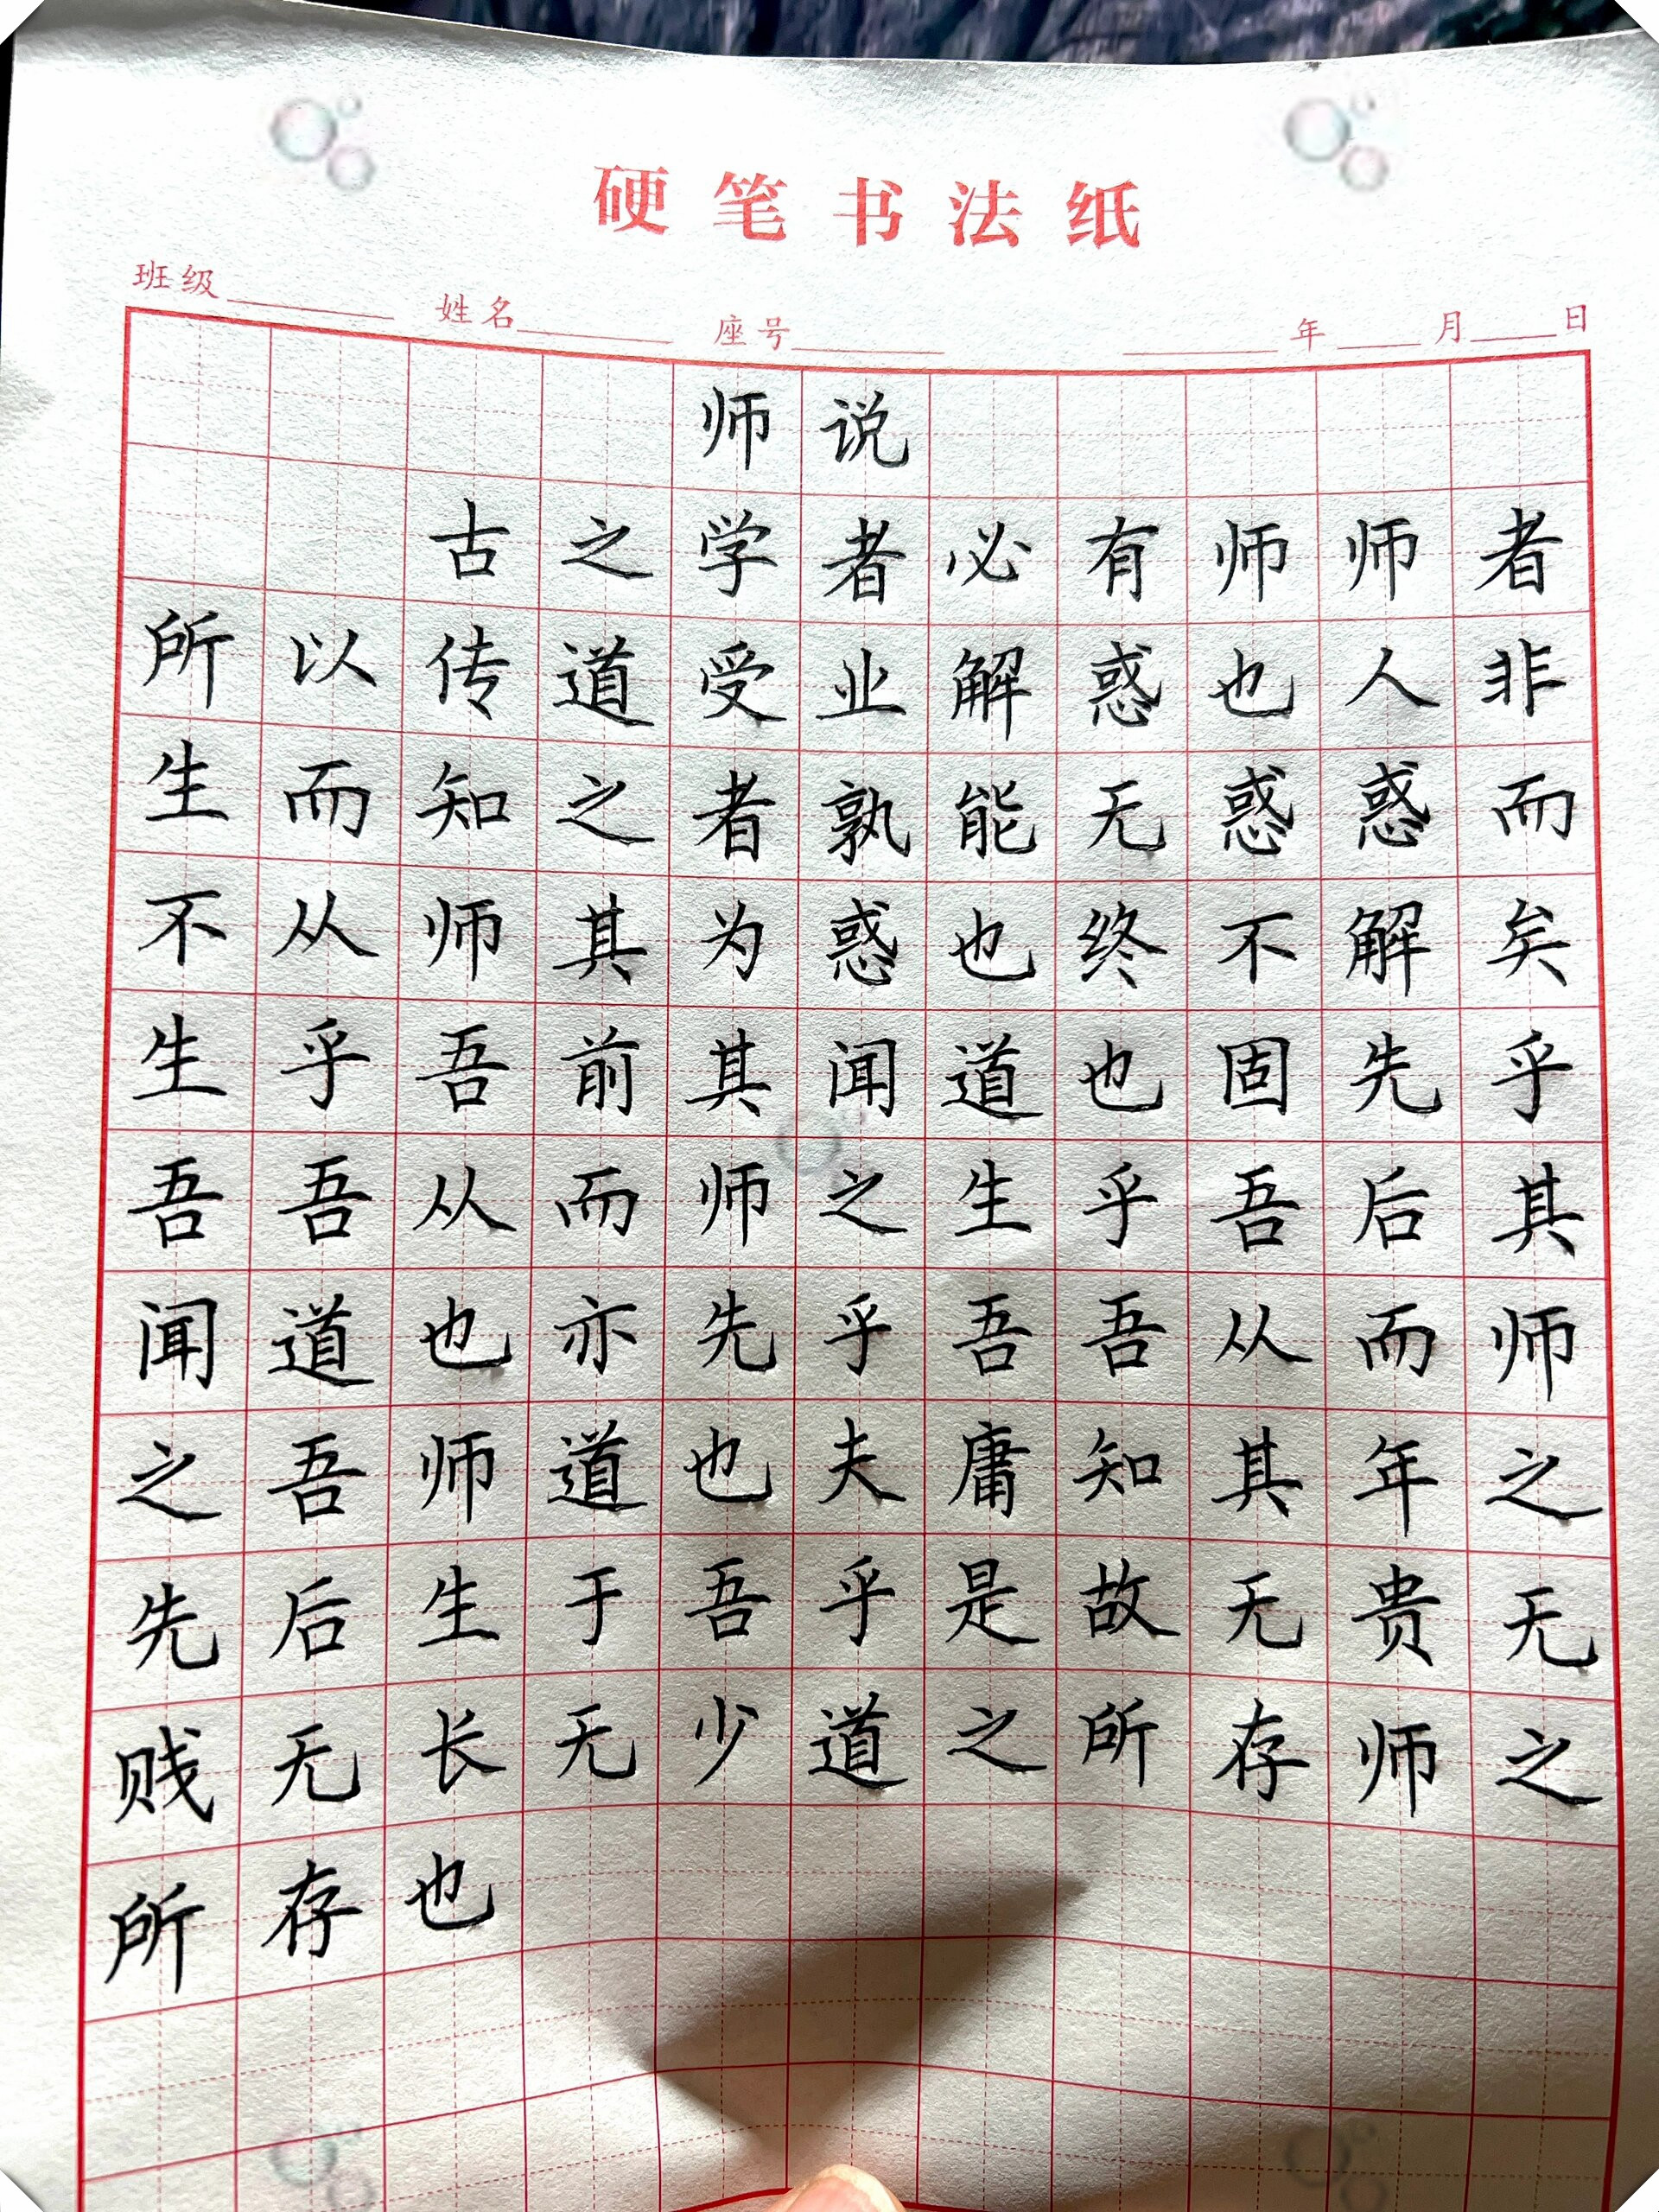 硬笔书法纸
班级 姓名 座号 年 月 日
师说
古之学者必有师师者
所以传道受业解惑也人非
生而知之者孰能无惑惑而
不从师其为惑也终不解矣
生乎吾前其闻道也固先乎
吾吾从而师之生乎吾后其
闻道也亦先乎吾吾从而师
之吾师道也夫庸知其年之
先后生于吾乎是故无贵无
贱无长无少道之所存师之
所存也